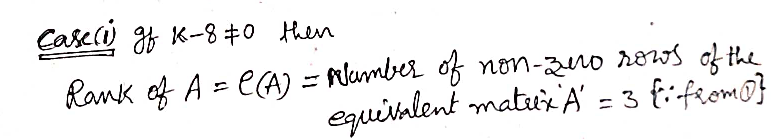 Case(i) If K-8≠0 then
Rank of A = ρ(A) = Number of non-zero rows of the
equivalent matrix 'A' = 3 {∵ from ①}